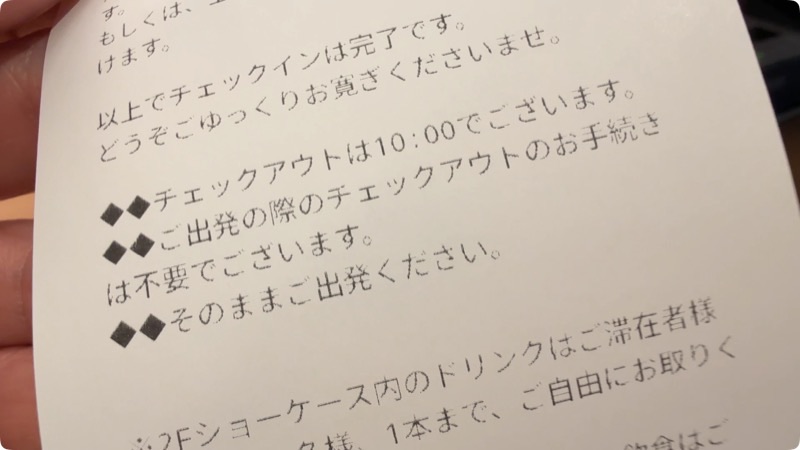 す。
もしくは、
けます。
以上でチェックインは完了です。
どうぞごゆっくりお寛ぎくださいませ。
◆◆チェックアウトは10:00でございます。
◆◆ご出発の際のチェックアウトのお手続き
は不要でございます。
◆◆そのままご出発ください。
※2Fショーケース内のドリンクはご滞在者様
様、1本まで、ご自由にお取りく
飲食はご